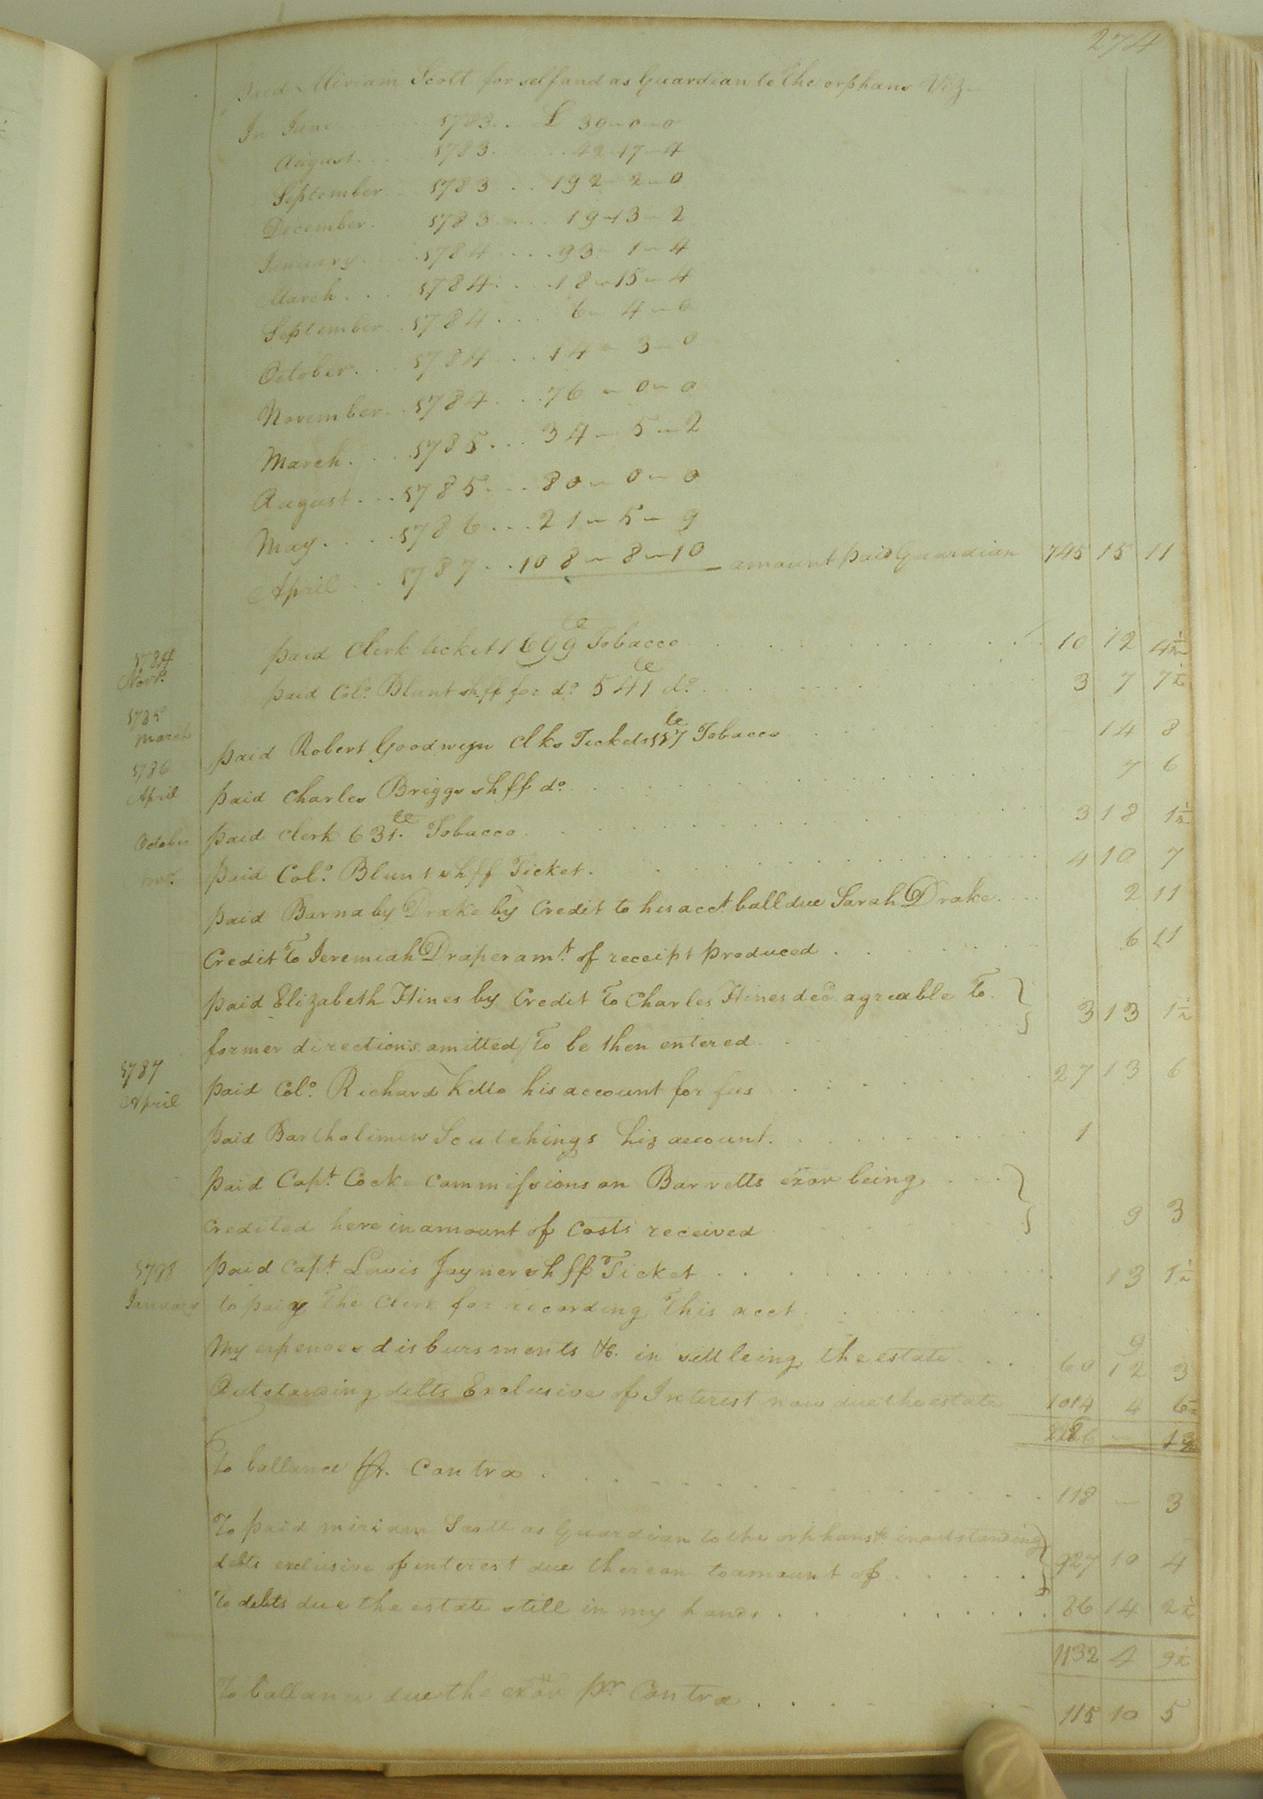 274
Paid Miriam Scott for self and as Guardian to the orphans Viz
In June 1783 £ 39-0-0
August 1783 42-17-4
September 1783 192-2-0
December 1783 19-13-2
January 1784 93-1-4
March 1784 18-15-4
September 1784 6-4-6
October 1784 14-3-0
November 1784 76-0-0
March 1785 34-5-2
August 1785 80-0-0
May 1786 21-5-9
April 1787 108-8-10 amount paid Guardian 745 15 11
1784 Novr. paid Clerk ticket 1699 Tobacco 10 12 4½
paid Colo. Blunt shff for do. 541 do. 3 7 7½
1785 March paid Robert Goodwyn Clks Tickets 117 Tobacco 14 8
1786 April paid Charles Briggs shff do. 7 6
October paid clerk 631 Tobacco 3 18 1½
paid Colo. Blunt shff Ticket 4 10 7
paid Barnaby Drake by Credit to his acct ball due Sarah Drake 2 11
Credit To Jeremiah Draper amt. of receipt produced 6 11
paid Elizabeth Hines by Credit To Charles Hines decd. agreable To
former directions omitted To be then entered 3 13 1½
1787 April paid Colo. Richard Kello his account for fees 27 13 6
paid Bartholimew Scutchings his account 1
paid Capt. Cocke commissions on Barretts exor being
credited here in amount of Costs received 9 3
1788 January paid Capt. Lewis Joyner shff Ticket 13 1½
to pay The Clerk for recording This acct 9
My expences disbursments &c. in settleing the estate 60 12 3
Outstanding debts Exclusive of Interest now due the estate 1014 4 6½
To ballance pr. Contra 118 — 3
To paid miriam Scott as Guardian to the orphans in outstanding
debts exclusive of interest due thereon to amount of 927 10 4
To debts due the estate still in my hands 86 14 2½
1132 4 9½
To ballance due the exor pr Contra 115 10 5